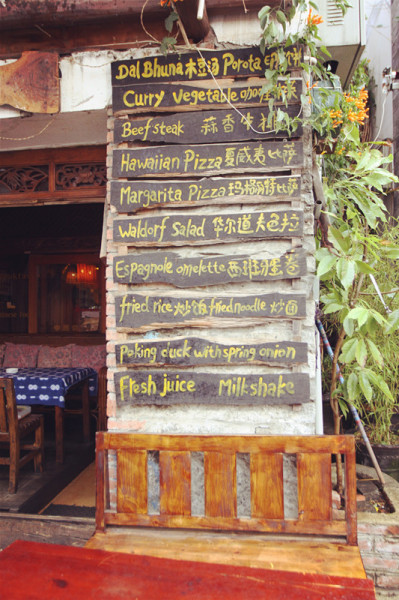 Dal Bhuna 木豆汤 Porota 印度饼
Curry vegetable
Beef steak 蒜香牛排
Hawaiian Pizza 夏威夷比萨
Margarita Pizza 玛格丽特比萨
Waldorf Salad 华尔道夫色拉
Espagnole omelette 西班牙蛋卷
fried rice 炒饭 fried noodle 炒面
Peking duck with spring onion
Fresh juice Milkshake